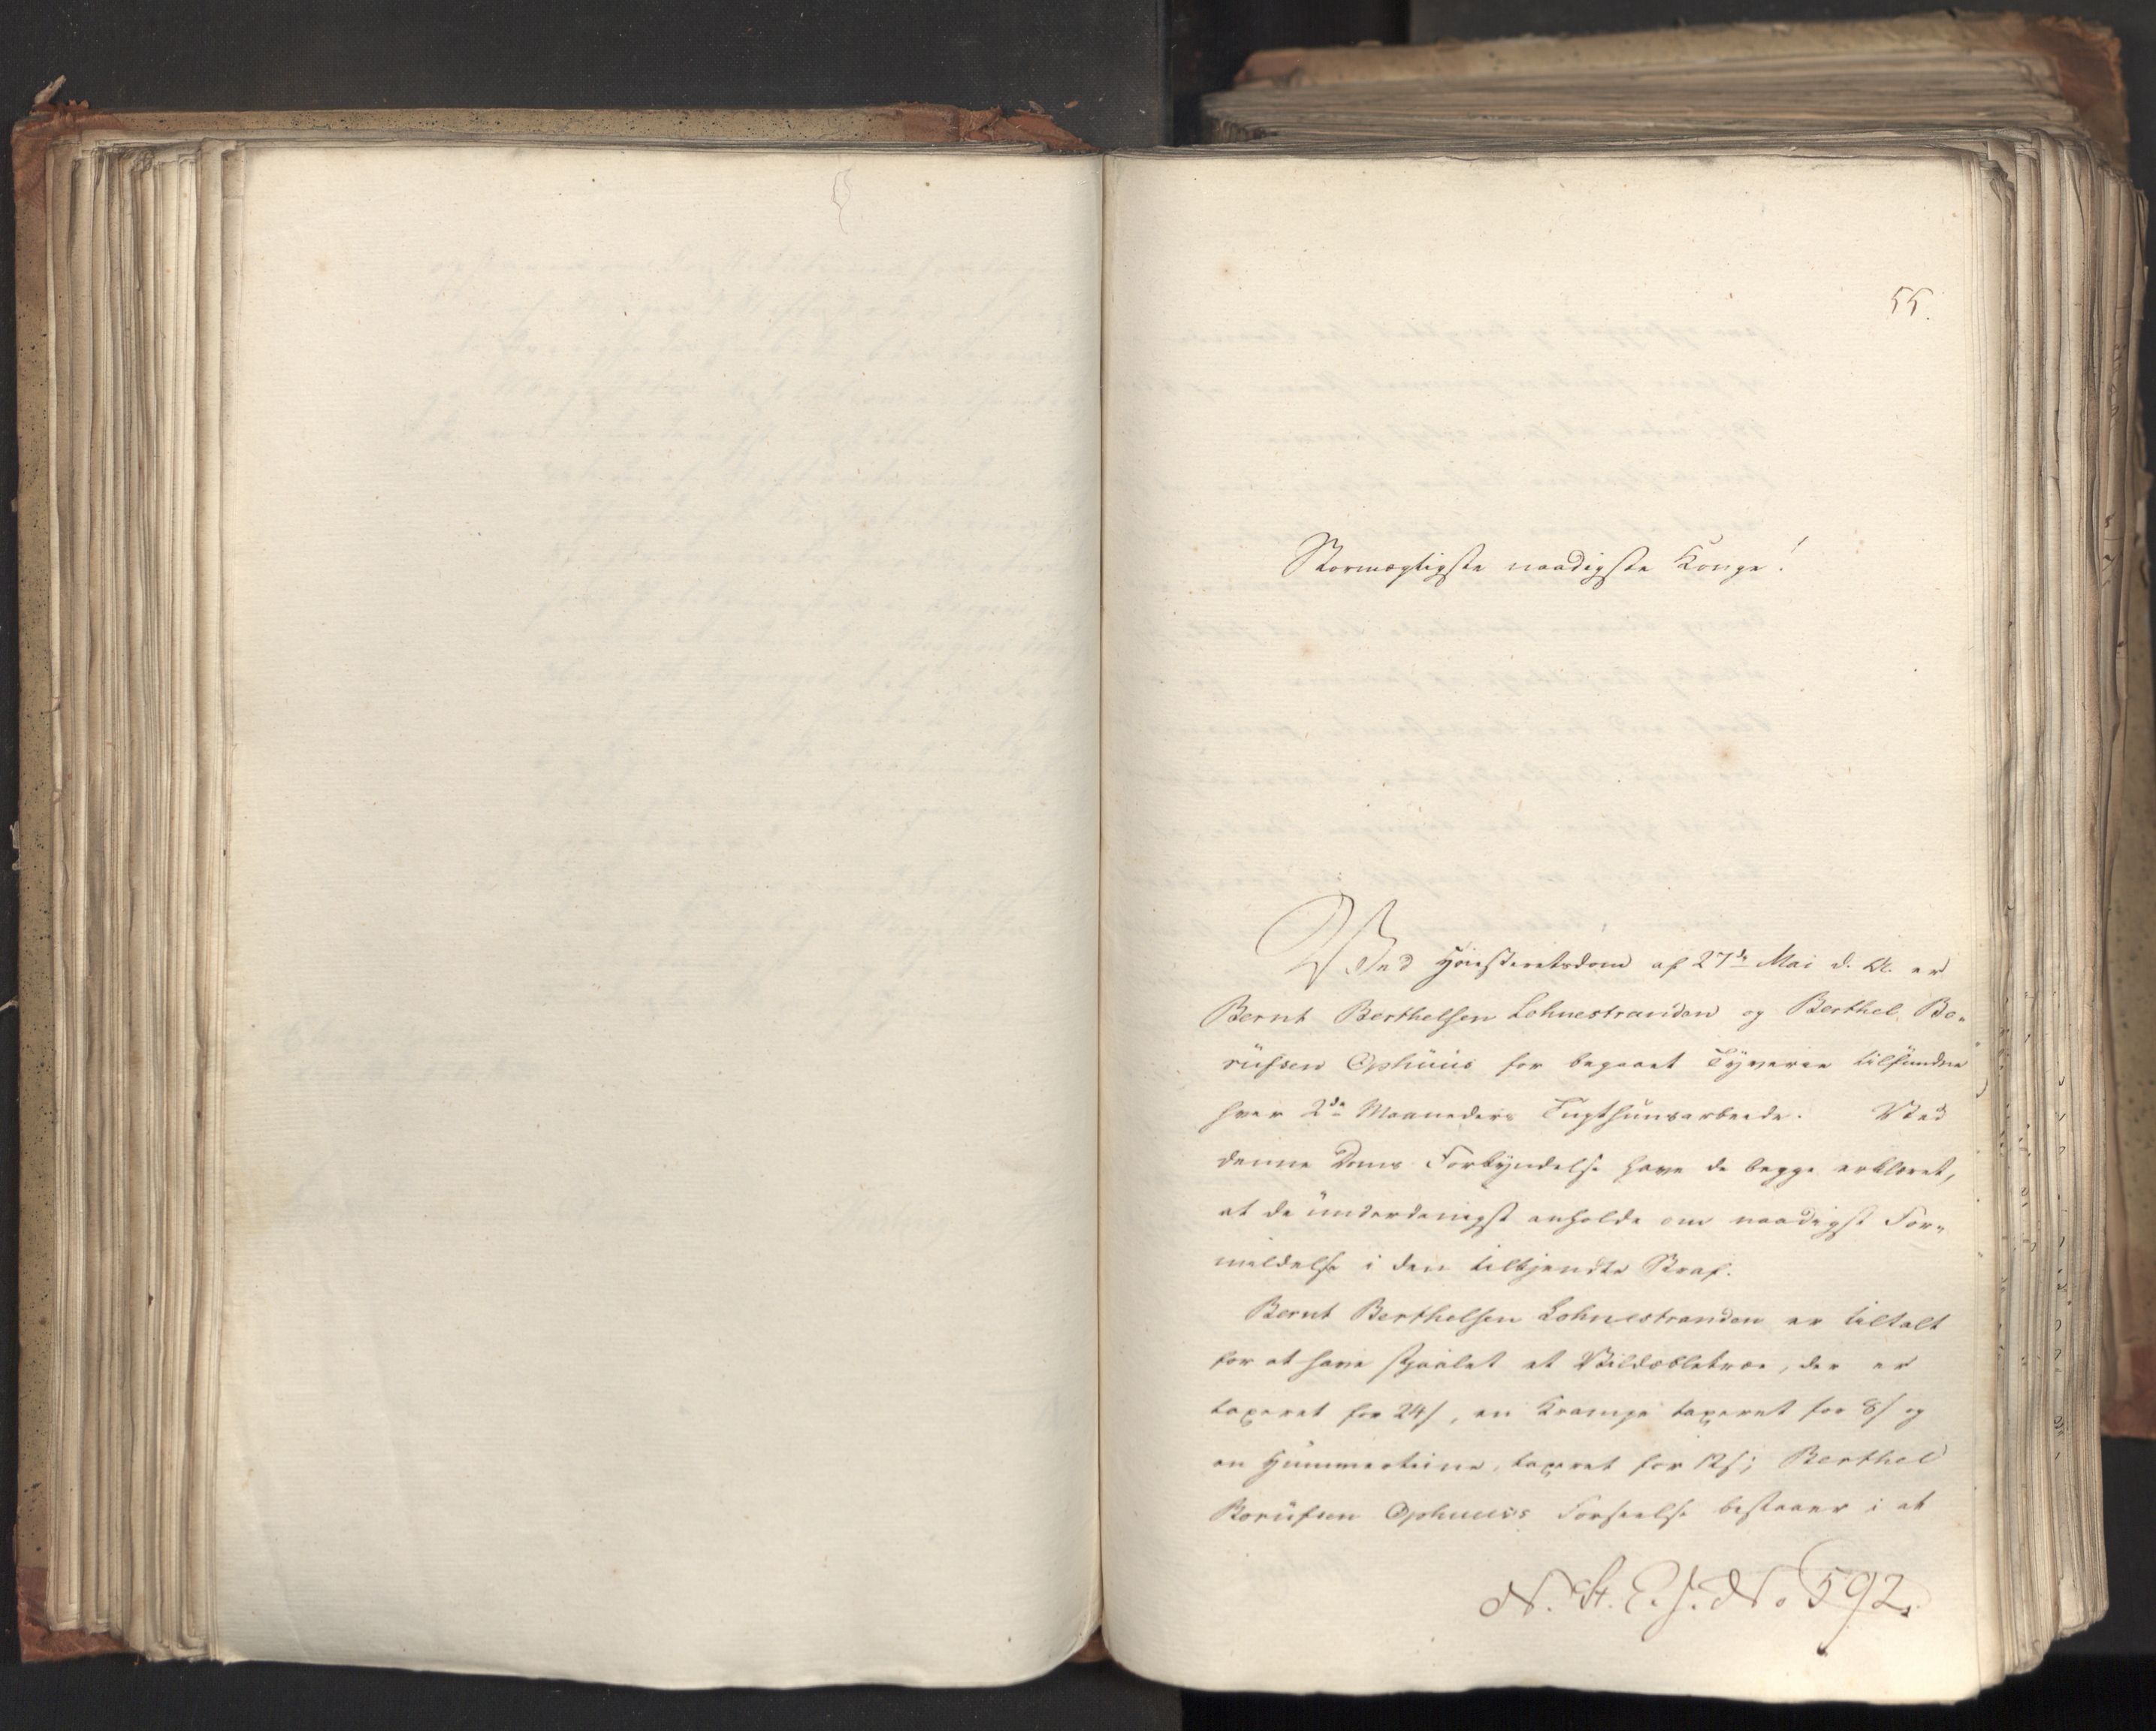 55.
Stormægtigste naadigste Konge!
Ved Høiesteretsdom af 27de Mai d. A. er
Bernt Berthelsen Lohnestranden og Berthel Be-
riüsen Ophuus for begaaet Tyverie tilfunden
hver 2de Maaneders Tugthuusarbeide. Ved
denne Doms Forkyndelse have de begge erklæret,
at de underdanigst anholde om naadigst For-
mildelse i den tilkjendte Straf.
Bernt Berthelsen Lohnestranden er tiltalt
for at have stjaalet et Vildæbletræe, der er
taxeret for 24 s, en Krampe taxeret for 8 s og
en Hummerteine, taxeret for 12 s; Berthel
Ophuus Forseelse bestaaer i at
N. St. E. J. No 592.